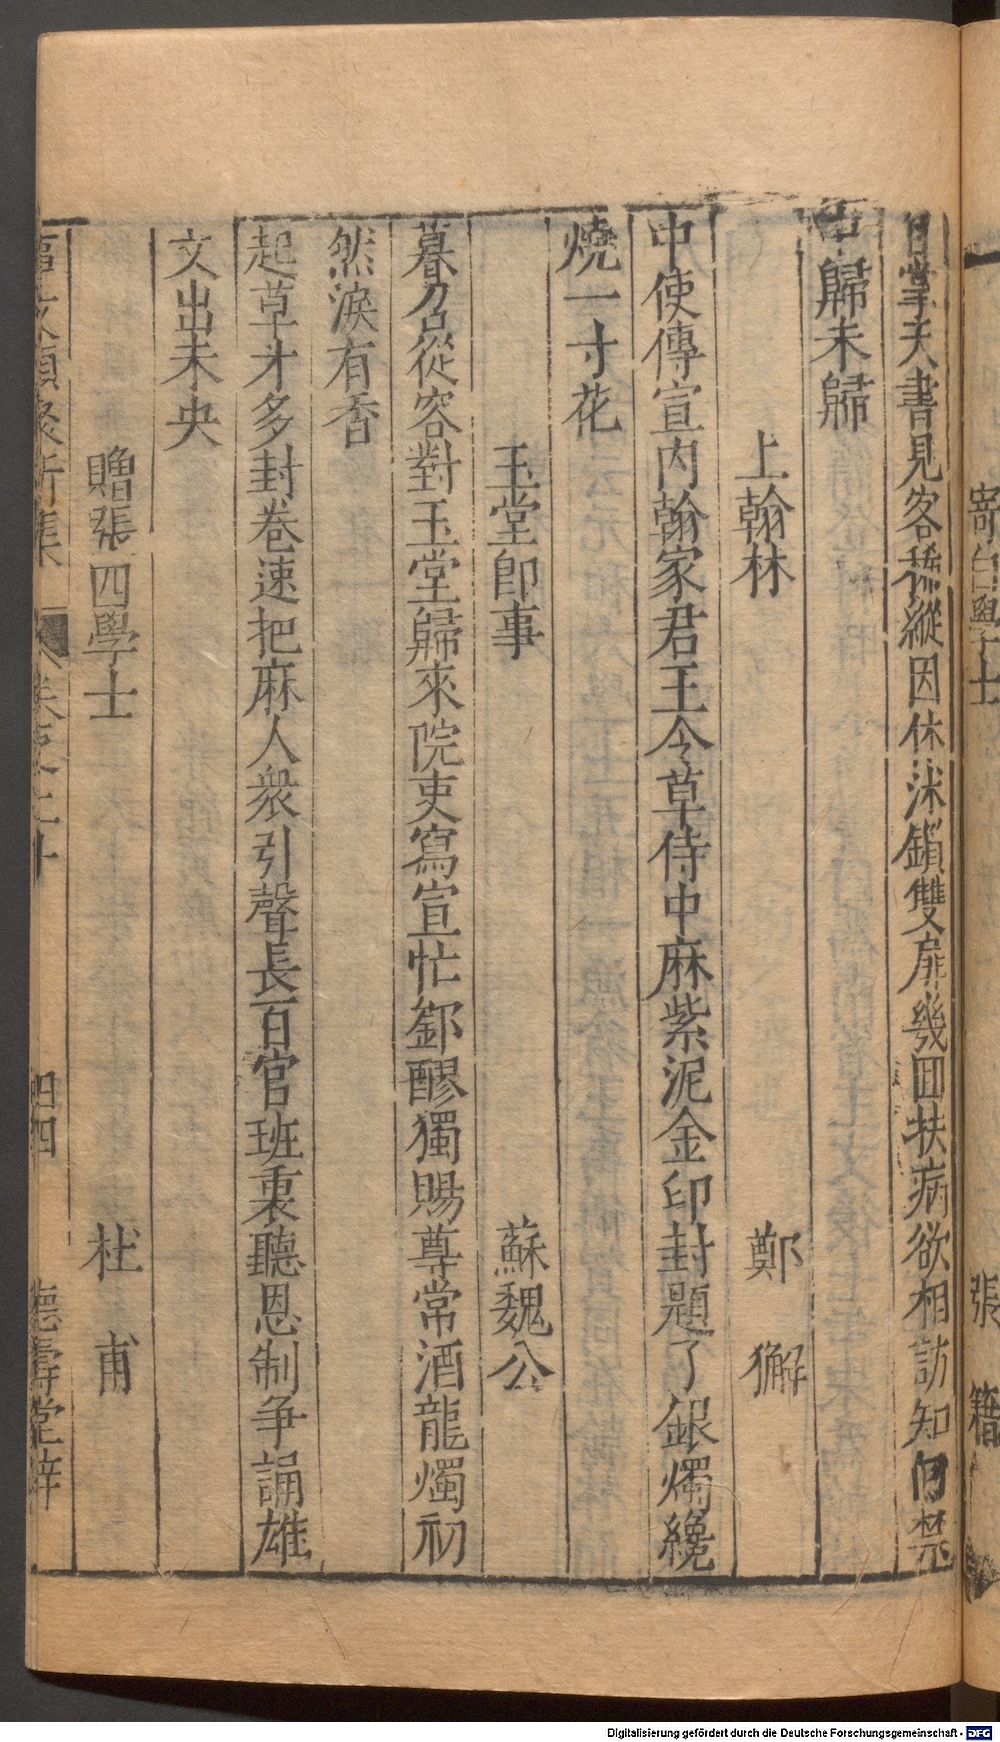 寄白學士 張籍
自掌天書見客稀縱因休沐鎖雙扉幾回扶病欲相訪知向禁
中歸未歸
上翰林 鄭 獬
中使傳宣内翰家君王令草侍中麻紫泥金印封題了銀燭纔
燒一寸花
玉堂卽事 蘇魏公
暮召從容對玉堂歸來院吏寫宣忙鄒醪獨賜尊常酒龍燭初
然淚有香
起草才多封卷速把麻人衆引聲長百官班裏聽恩制爭誦雄
文出未央
贈張四學士 杜 甫
事文類聚新集 卷之二十 四四 德壽堂梓
Digitalisierung gefördert durch die Deutsche Forschungsgemeinschaft - DFG